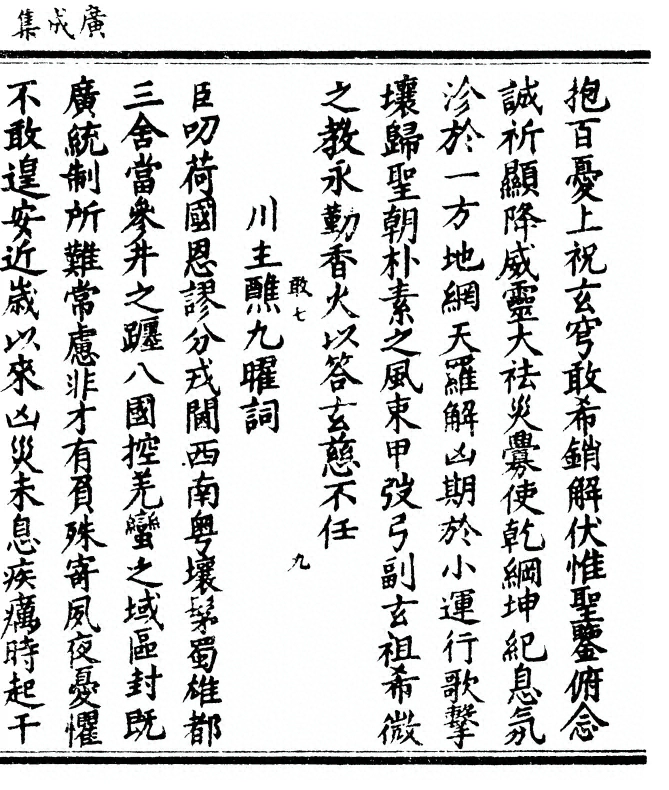 廣成集
抱百憂上祝玄穹敢希銷解伏惟聖鑒俯念
誠祈顯降威靈大祛災釁使乾綱坤紀息氛
沴於一方地網天羅解凶期於小運行歌擊
壤歸聖朝朴素之風束甲弢弓副玄祖希微
之教永勤香火以答玄慈不任
敢七
九
川主醮九曜詞
臣叨荷國恩謬分戎閫西南粤壤髳蜀雄都
三舍當參井之躔八國控羌蠻之域區封既
廣統制所難常慮非才有負殊寄夙夜憂懼
不敢遑安近歲以來凶災未息疾癘時起干